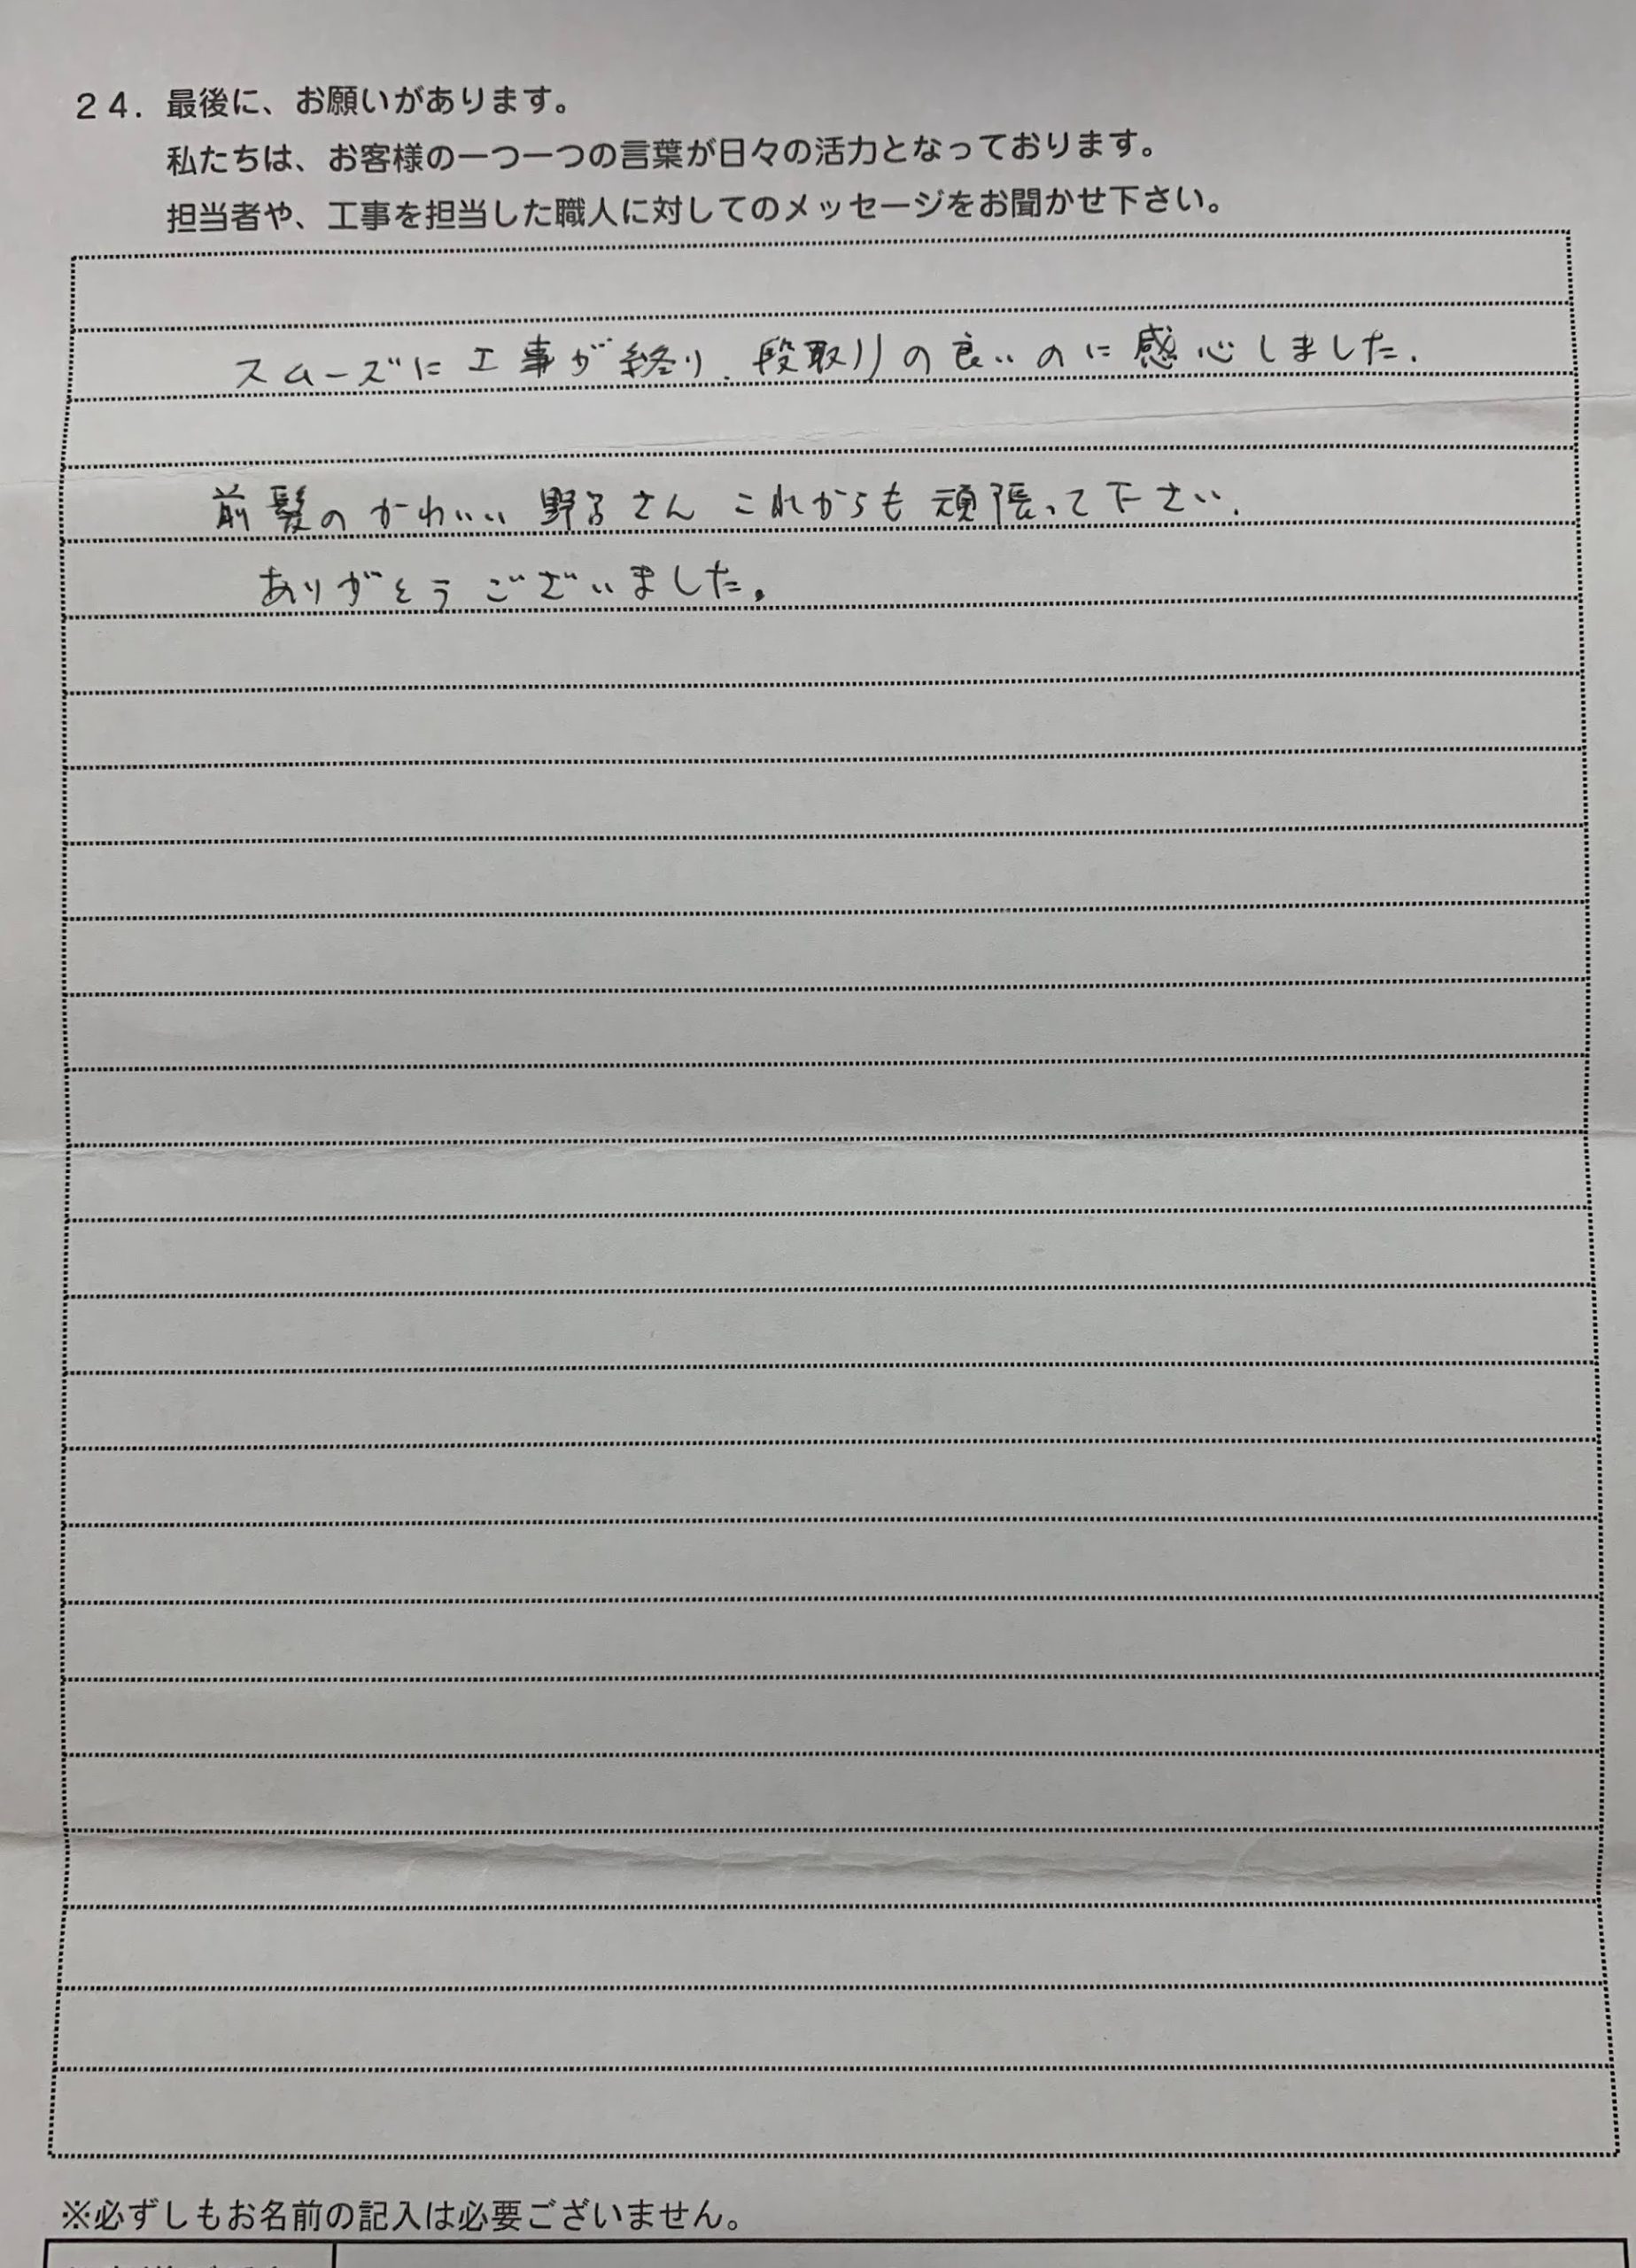 24. 最後に、お願いがあります。
私たちは、お客様の一つ一つの言葉が日々の活力となっております。
担当者や、工事を担当した職人に対してのメッセージをお聞かせ下さい。
スムーズに工事が終り、段取りの良いのに感心しました.
前髪のかわいい さん これからも頑張って下さい.
ありがとうございました。
※必ずしもお名前の記入は必要ございません。